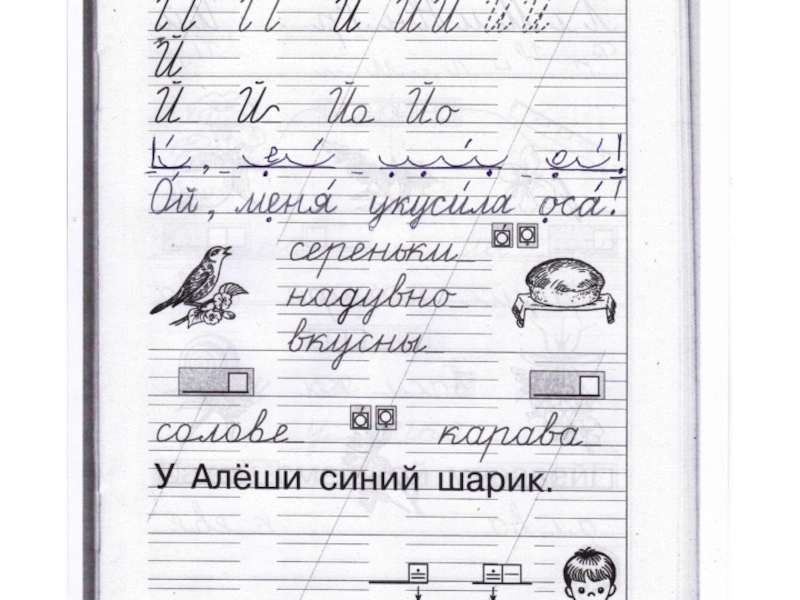 Й Й Й Й Й Й Й
Й
Й Й Йа Йо
Ой, меня́ укуси́ла оса́!
сереньки
надувно
вкусны
солове
карава
У Алёши синий шарик.